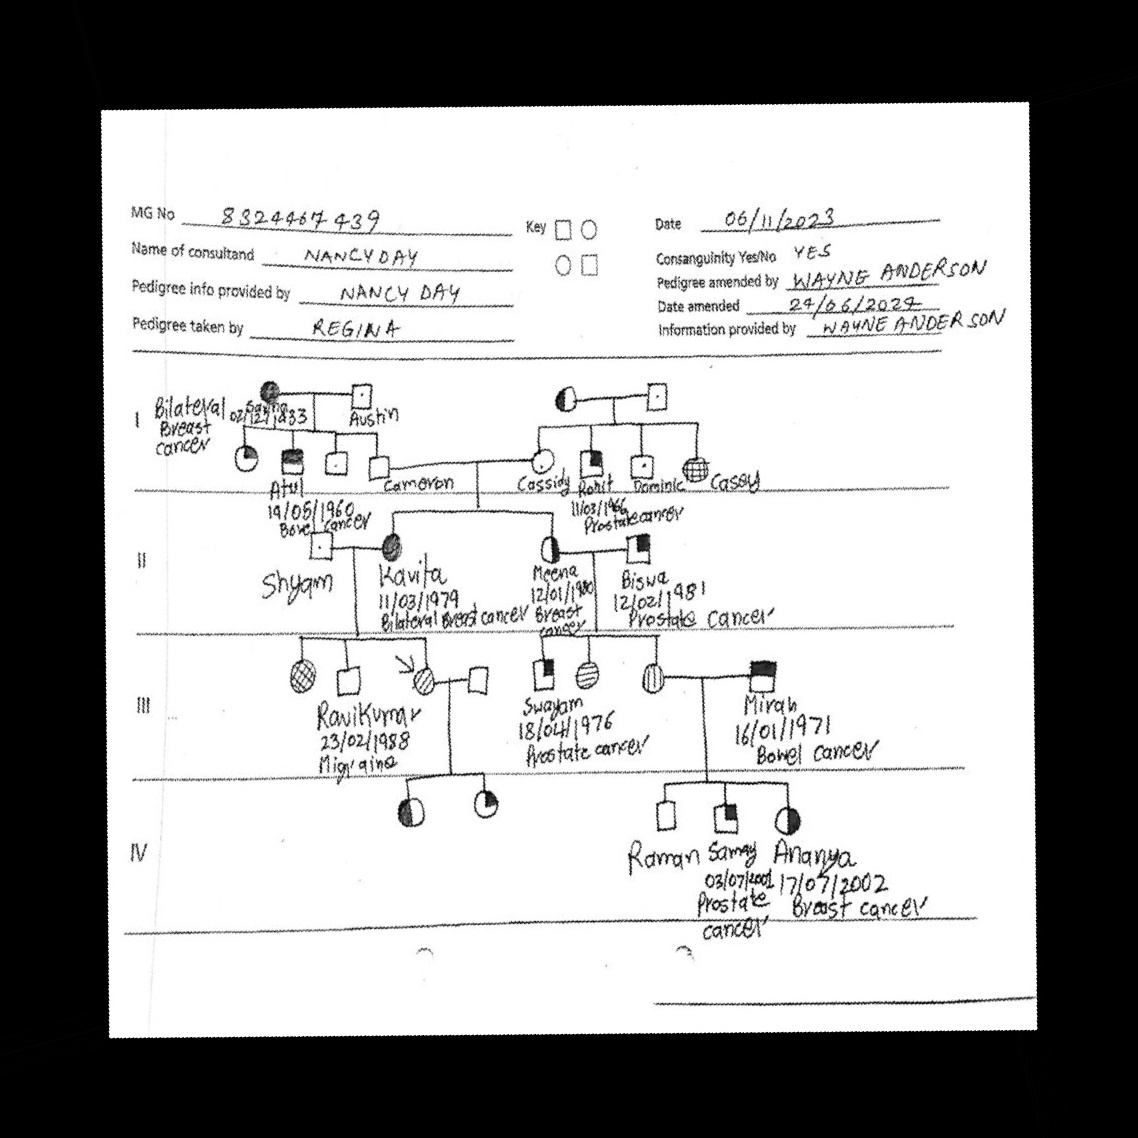 MG No 8324467439
Key
Date 06/11/2023
Name of consultand NANCY DAY
Consanguinity Yes/No YES
Pedigree info provided by NANCY DAY
Pedigree amended by WAYNE ANDERSON
Pedigree taken by REGINA
Date amended 24/06/2024
Information provided by WAYNE ANDERSON
I
Bilateral
Breast
cancer
02/12/1933
Austin
Atul
19/05/1960
Bowel cancer
Cameron
Cassidy
Rohit
11/03/1966
Prostate cancer
Dominic
Casey
II
Shyam
Kavita
11/03/1979
Bilateral Breast cancer
Meena
12/01/1980
Breast
cancer
Biswa
12/02/1981
Prostate cancer
III
RaviKumar
23/02/1988
Migraine
Swayam
18/04/1976
Prostate cancer
Mirah
16/01/1971
Bowel cancer
IV
Raman
Samay
03/07/2001
Prostate
cancer
Ananya
17/07/2002
Breast cancer